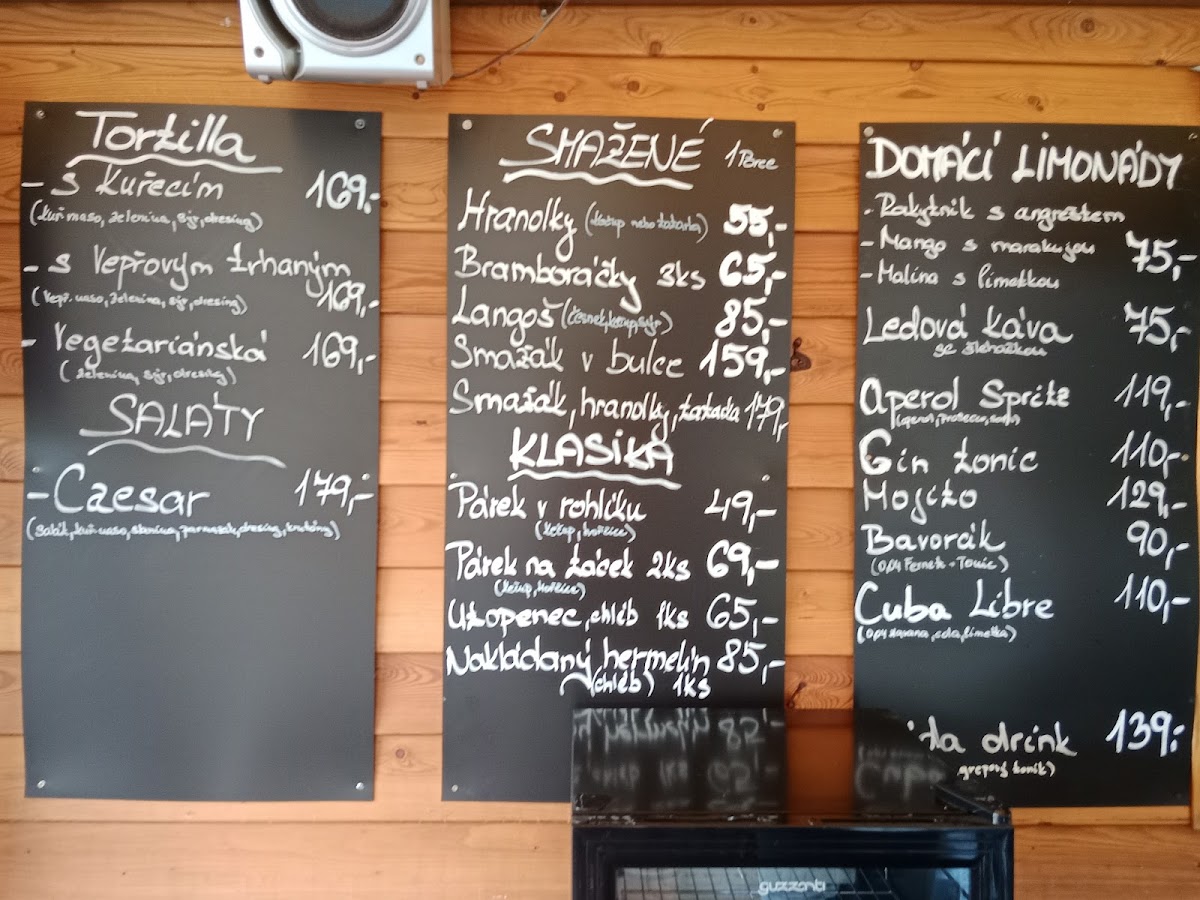 Tortilla
- s kuřecím 169,-
(kuř. maso, zelenina, sýr, dresing)
- s vepřovým trhaným
(vepř. maso, zelenina, sýr, dresing) 169,-
- Vegetariánská 169,-
(zelenina, sýr, dresing)
SALÁTY
- Caesar 179,-
(salát, kuř. maso, slanina, parmazán, dresing, krutóny)
SMAŽENÉ 1 Porce
Hranolky (kečup nebo tatarka) 55,-
Bramboráčky 3ks 65,-
Langoš (česnek, kečup, sýr) 85,-
Smažák v bulce 159,-
Smažák, hranolky, tatarka 179,-
KLASIKA
Párek v rohlíku 49,-
(kečup, hořčice)
Párek na tácek 2ks 69,-
(kečup, hořčice)
Utopenec, chléb 1ks 65,-
Nakládaný hermelín 85,-
(chléb) 1ks
DOMÁCÍ LIMONÁDY
- Rakytník s angreštem
- Mango s marakujou 75,-
- Malina s limetkou
Ledová káva 75,-
se šlehačkou
Aperol Spritz 119,-
(aperol, prosecco, soda)
Gin tonic 110,-
Mojito 129,-
Bavorák 90,-
(0,04 Fernet - Tonic)
Cuba Libre 110,-
(0,04 Havana, cola, limetka)
drink 139,-
grepový tonik)
guzzanti